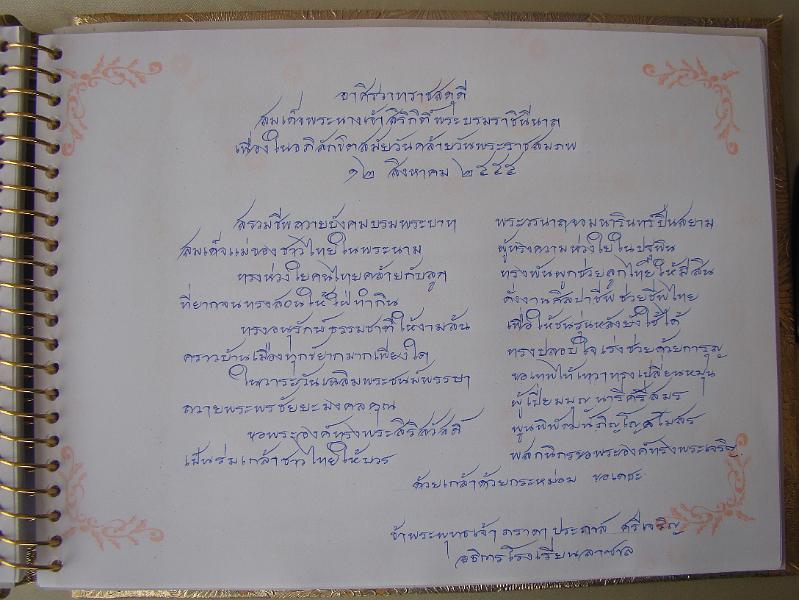 อาศิรวาทราชสดุดี
สมเด็จพระนางเจ้าสิริกิติ์ พระบรมราชินีนาถ
เนื่องในอภิลักขิตสมัยวันคล้ายวันพระราชสมภพ
๑๒ สิงหาคม ๒๕๕๕
สรวมชีพถวายบังคมบรมพระบาท พระวรนาถจอมนารินทร์ปิ่นสยาม
สมเด็จแม่ของชาวไทยในพระนาม ผู้ทรงความห่วงใยใน
ทรงห่วงใยคนไทยคล้ายกับลูก ทรงพันผูกช่วยลูกไทยให้มีสิน
ที่ยากจนทรงสอนให้ใฝ่ทำกิน ดั่งงานศิลปาชีพช่วยชีพไทย
ทรงอนุรักษ์ธรรมชาติให้งามล้น เพื่อให้ชนรุ่นหลังยังใช้ได้
คราวบ้านเมืองทุกข์ยากมากเพียงใด ทรงปลอบใจเร่งช่วยด้วยการุญ
ในวาระวันเฉลิมพระชนม์พรรษา ขอเทพไท้เทวาทรงเปลี่ยนหมุน
ถวายพระพรชัยยะมังคลคุณ ผู้เปี่ยมบุญนารีศรีสมร
ขอพระองค์ทรงพระสิริสวัสดิ์ พูนพิพัฒน์ภิญโญสโมสร
เป็นร่มเกล้าชาวไทยให้บวร พสกนิกรขอพระองค์ทรงพระเจริญ
ด้วยเกล้าด้วยกระหม่อม ขอเดชะ
ข้าพระพุทธเจ้า ภราดา ประภาส ศรีเจริญ
อธิการโรงเรียนลาซาล